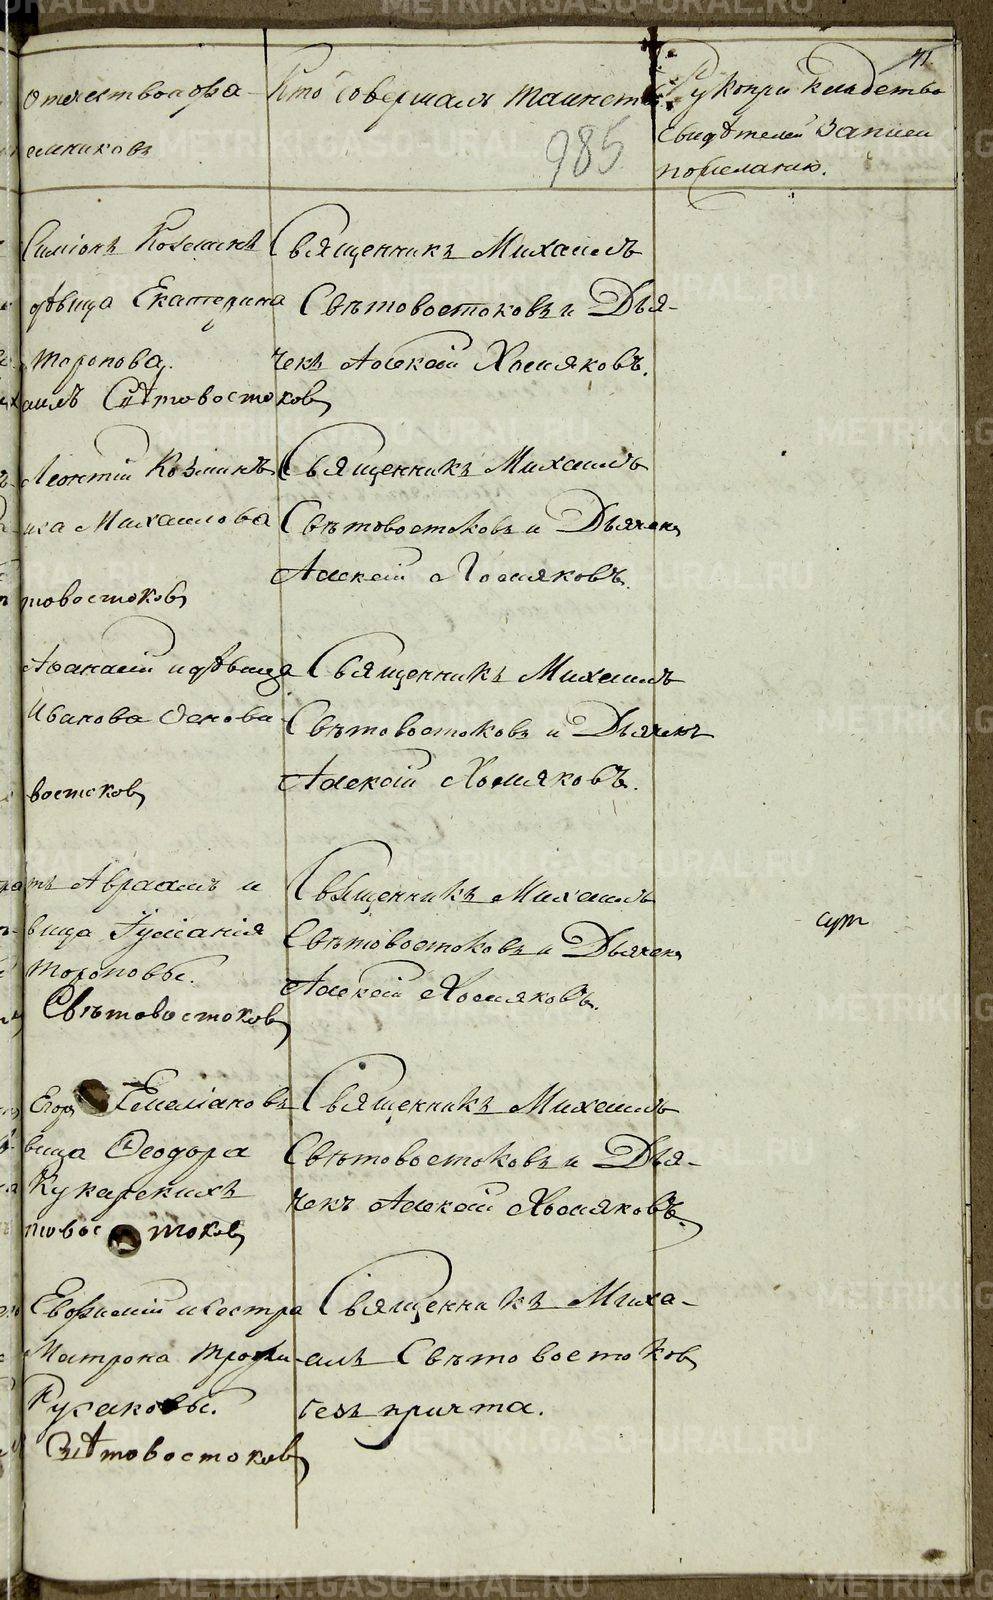 отчество и фа-
милия
Кто совершалъ таинст-
985
Рукоприкладство
свидѣтелей записи
по желанію.
Симіонъ Козминъ
дѣвица Екатерина
торопова.
аилъ Свѣтовостоковъ
Священникъ Михаилъ
Свѣтовостоковъ и Дья-
чекъ Алексій Хомяковъ.
Леонтій Козминъ
Михаилова
товостоковъ
Священникъ Михаилъ
Свѣтовостоковъ и Дьячекъ
Алексій Хомяковъ.
Аѳанасій и дѣвица
Иванова
востоковъ
Священникъ Михаилъ
Свѣтовостоковъ и Дьячекъ
Алексій Хомяковъ.
тъ Авраамъ и
вица Іуліанія
тороповы.
Свѣтовостоковъ
Священникъ Михаилъ
Свѣтовостоковъ и Дьячекъ
Алексій Хомяковъ.
Егоръ Емеліановъ
вица Ѳеодора
Кукарскихъ
товостоковъ
Священникъ Михаилъ
Свѣтовостоковъ и Дья-
чекъ Алексій Хомяковъ.
Евфимій и сестра
Матрона Трофи-
Русаковы.
Свѣтовостоковъ
Священникъ Миха-
илъ Свѣтовостоковъ
безъ причта.
METRIKI.GASO-URAL.RU